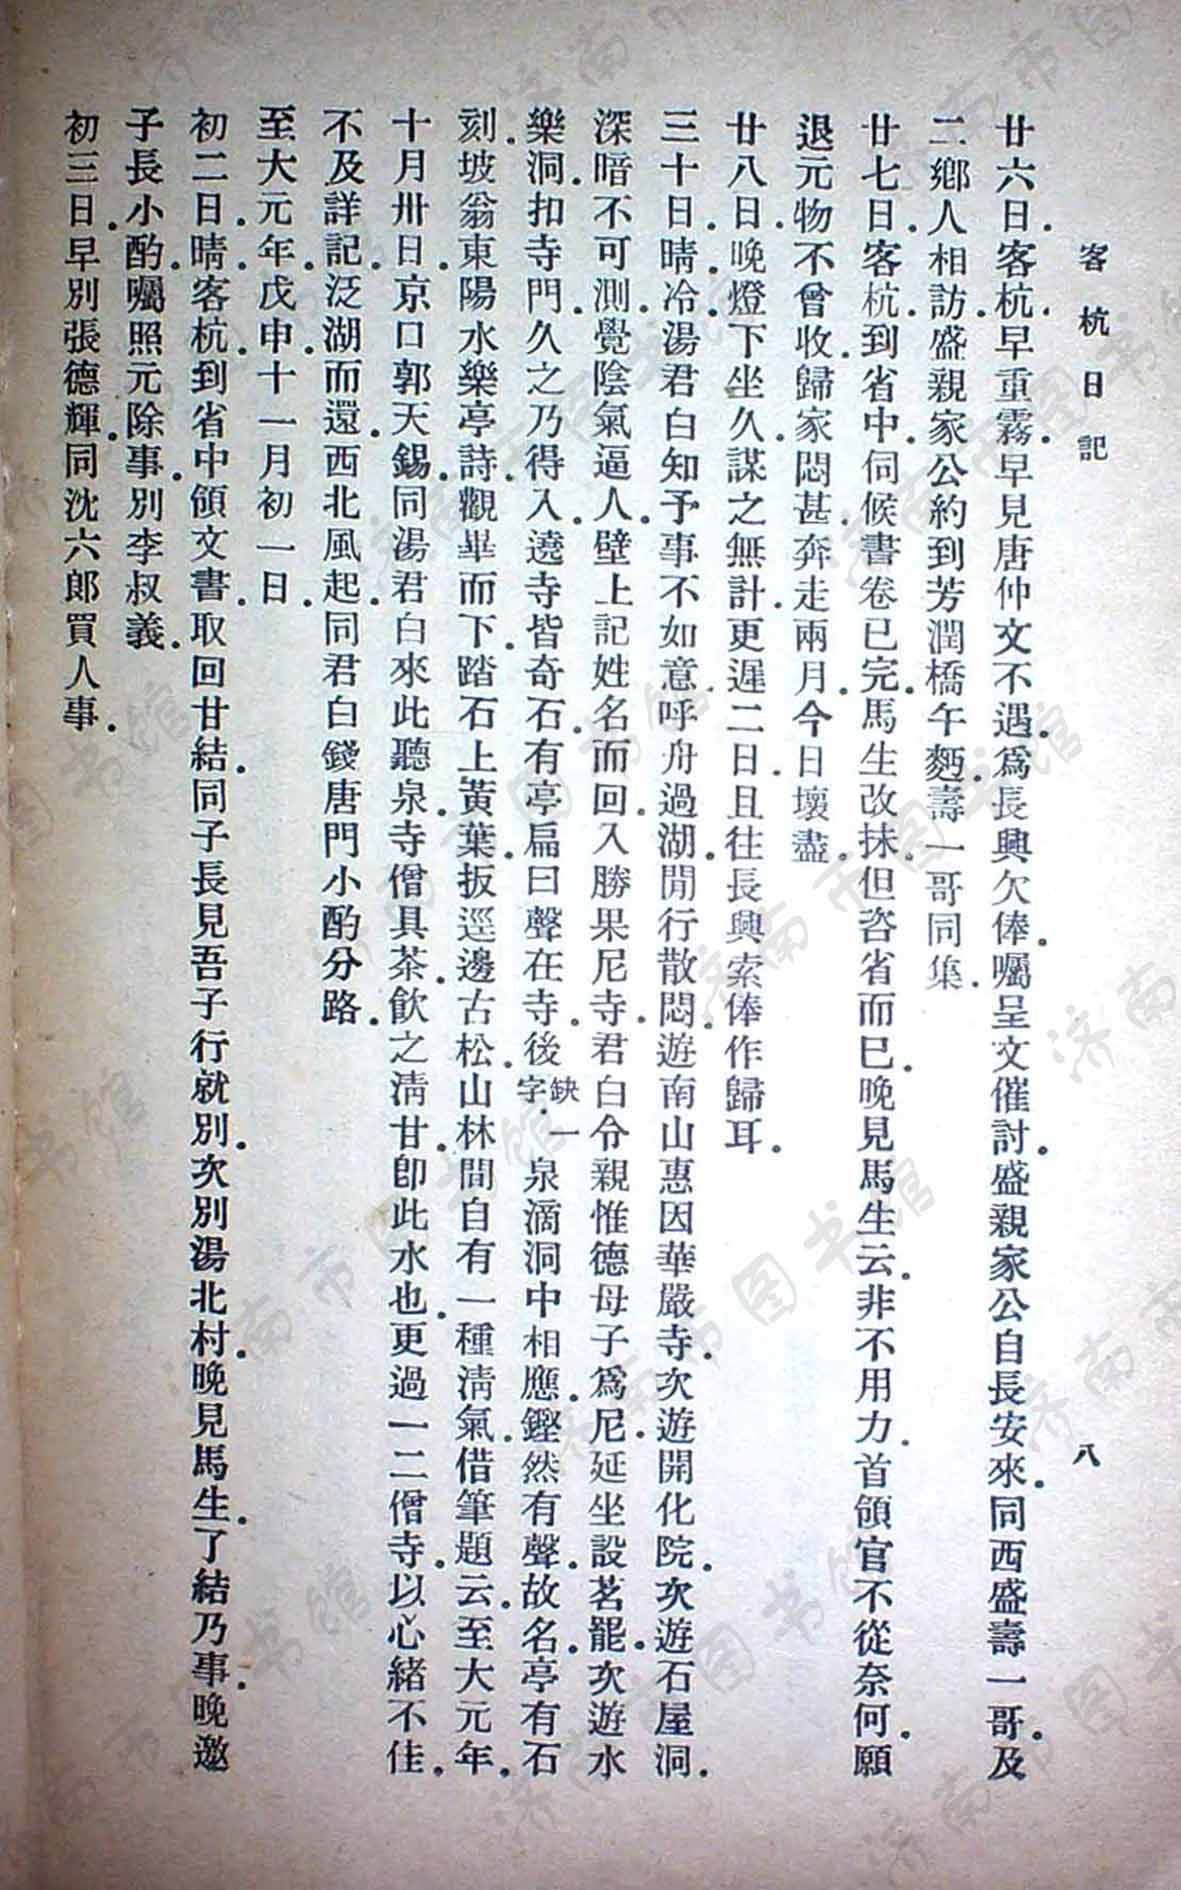 客杭日記
八
廿六日.客杭.早重霧.早見唐仲文不遇.爲長興欠俸.囑呈文催討.盛親家公自長安來.同西盛壽一哥.及
二鄉人相訪.盛親家公約到芳潤橋午麪.壽一哥同集.
廿七日.客杭.到省中.伺候書卷已完.馬生改抹.但咨省而已.晚見馬生云.非不用力.首領官不從奈何.願
退元物不曾收.歸家悶甚.奔走兩月.今日壞盡.
廿八日.晚燈下坐久.謀之無計.更遲二日.且往長興索俸作歸耳.
三十日.晴.冷.湯君白知予事不如意.呼舟過湖.閒行散悶.遊南山惠因華嚴寺.次遊開化院.次遊石屋洞.
深暗不可測.覺陰氣逼人.壁上記姓名而回.入勝果尼寺.君白令親惟德母子爲尼.延坐設茗罷.次遊水
樂洞.扣寺門.久之乃得入.遶寺皆奇石.有亭.扁曰聲在寺.後缺一字.泉滴洞中相應.鏗然有聲.故名.亭有石
刻.坡翁東陽水樂亭詩.觀畢而下.踏石上黃葉.扳逕邊古松.山林間自有一種淸氣.借筆題云.至大元年.
十月卅日.京口郭天錫.同湯君白來此聽泉.寺僧具茶.飲之淸甘.卽此水也.更過一二僧寺.以心緒不佳.
不及詳記.泛湖而還.西北風起.同君白錢唐門小酌分路.
至大元年.戊申.十一月初一日.
初二日.晴.客杭.到省中領文書.取回甘結.同子長見吾子行就別.次別湯北村.晚見馬生.了結乃事.晚邀
子長小酌.囑照元除事.別李叔義.
初三日.早別張德輝.同沈六郎買人事.